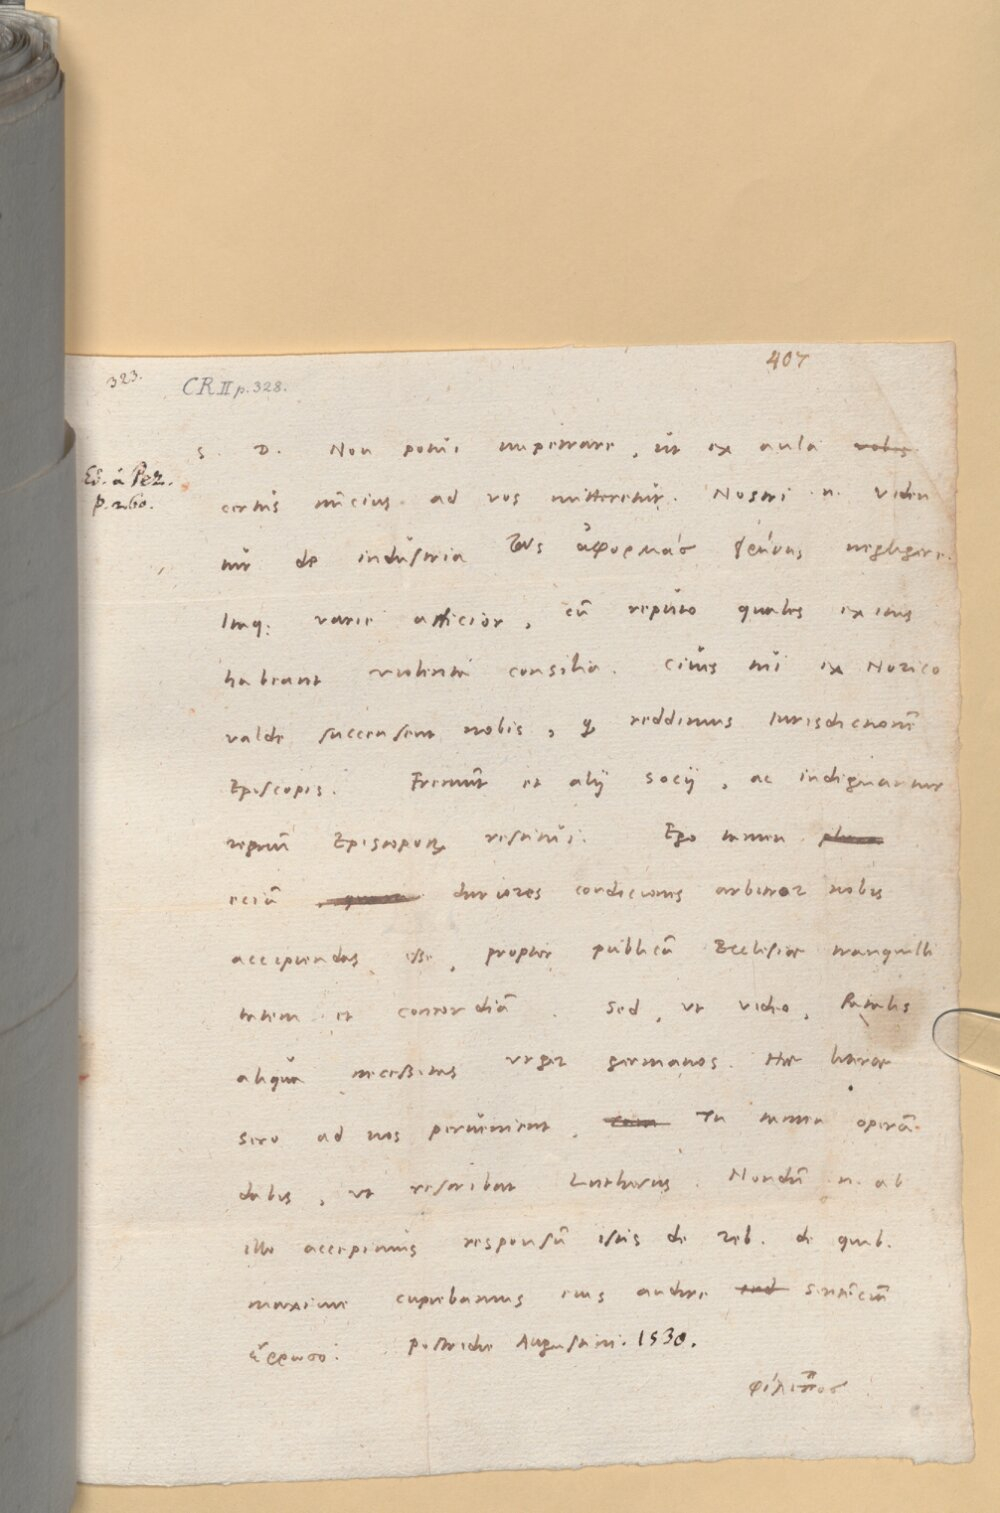 407
323.
CR II p. 328.
S. D. Non potui impetrare, ut ex aula vobis
Ed. a Pez.
p. 260.
certus nūcius ad vos mitteretur. Nostri n. viden
tur de industria τὰς ἀφορμὰς negligere.
Itaq; varie afficior, cū reputo quales exitus
habeant violenta consilia. Cives tui ex Norico
valde succensent nobis, q reddimus Iurisdictionē
Episcopis. Fremūt et alij socij, ac indignantur
regnū Episcoporꝝ restitui. Ego tamen
eciā duriores condiciones arbitror nobis
accipiendas esse, propter publicā Ecclesiae tranquilli
tatem et concordiā. Sed, ut video, fatalis
aliqua necessitas urget germanos. Hae literae
sero ad vos pervenient. Tu tamen operā
dabis, ut rescribat Lutherus. Nondū n. ab
illo accepimus responsū istis de reb. de quib.
maxime cupiebamus eius audire sentēciā
ἔρρωσο. postridie Augustini. 1530.
φίλιππος